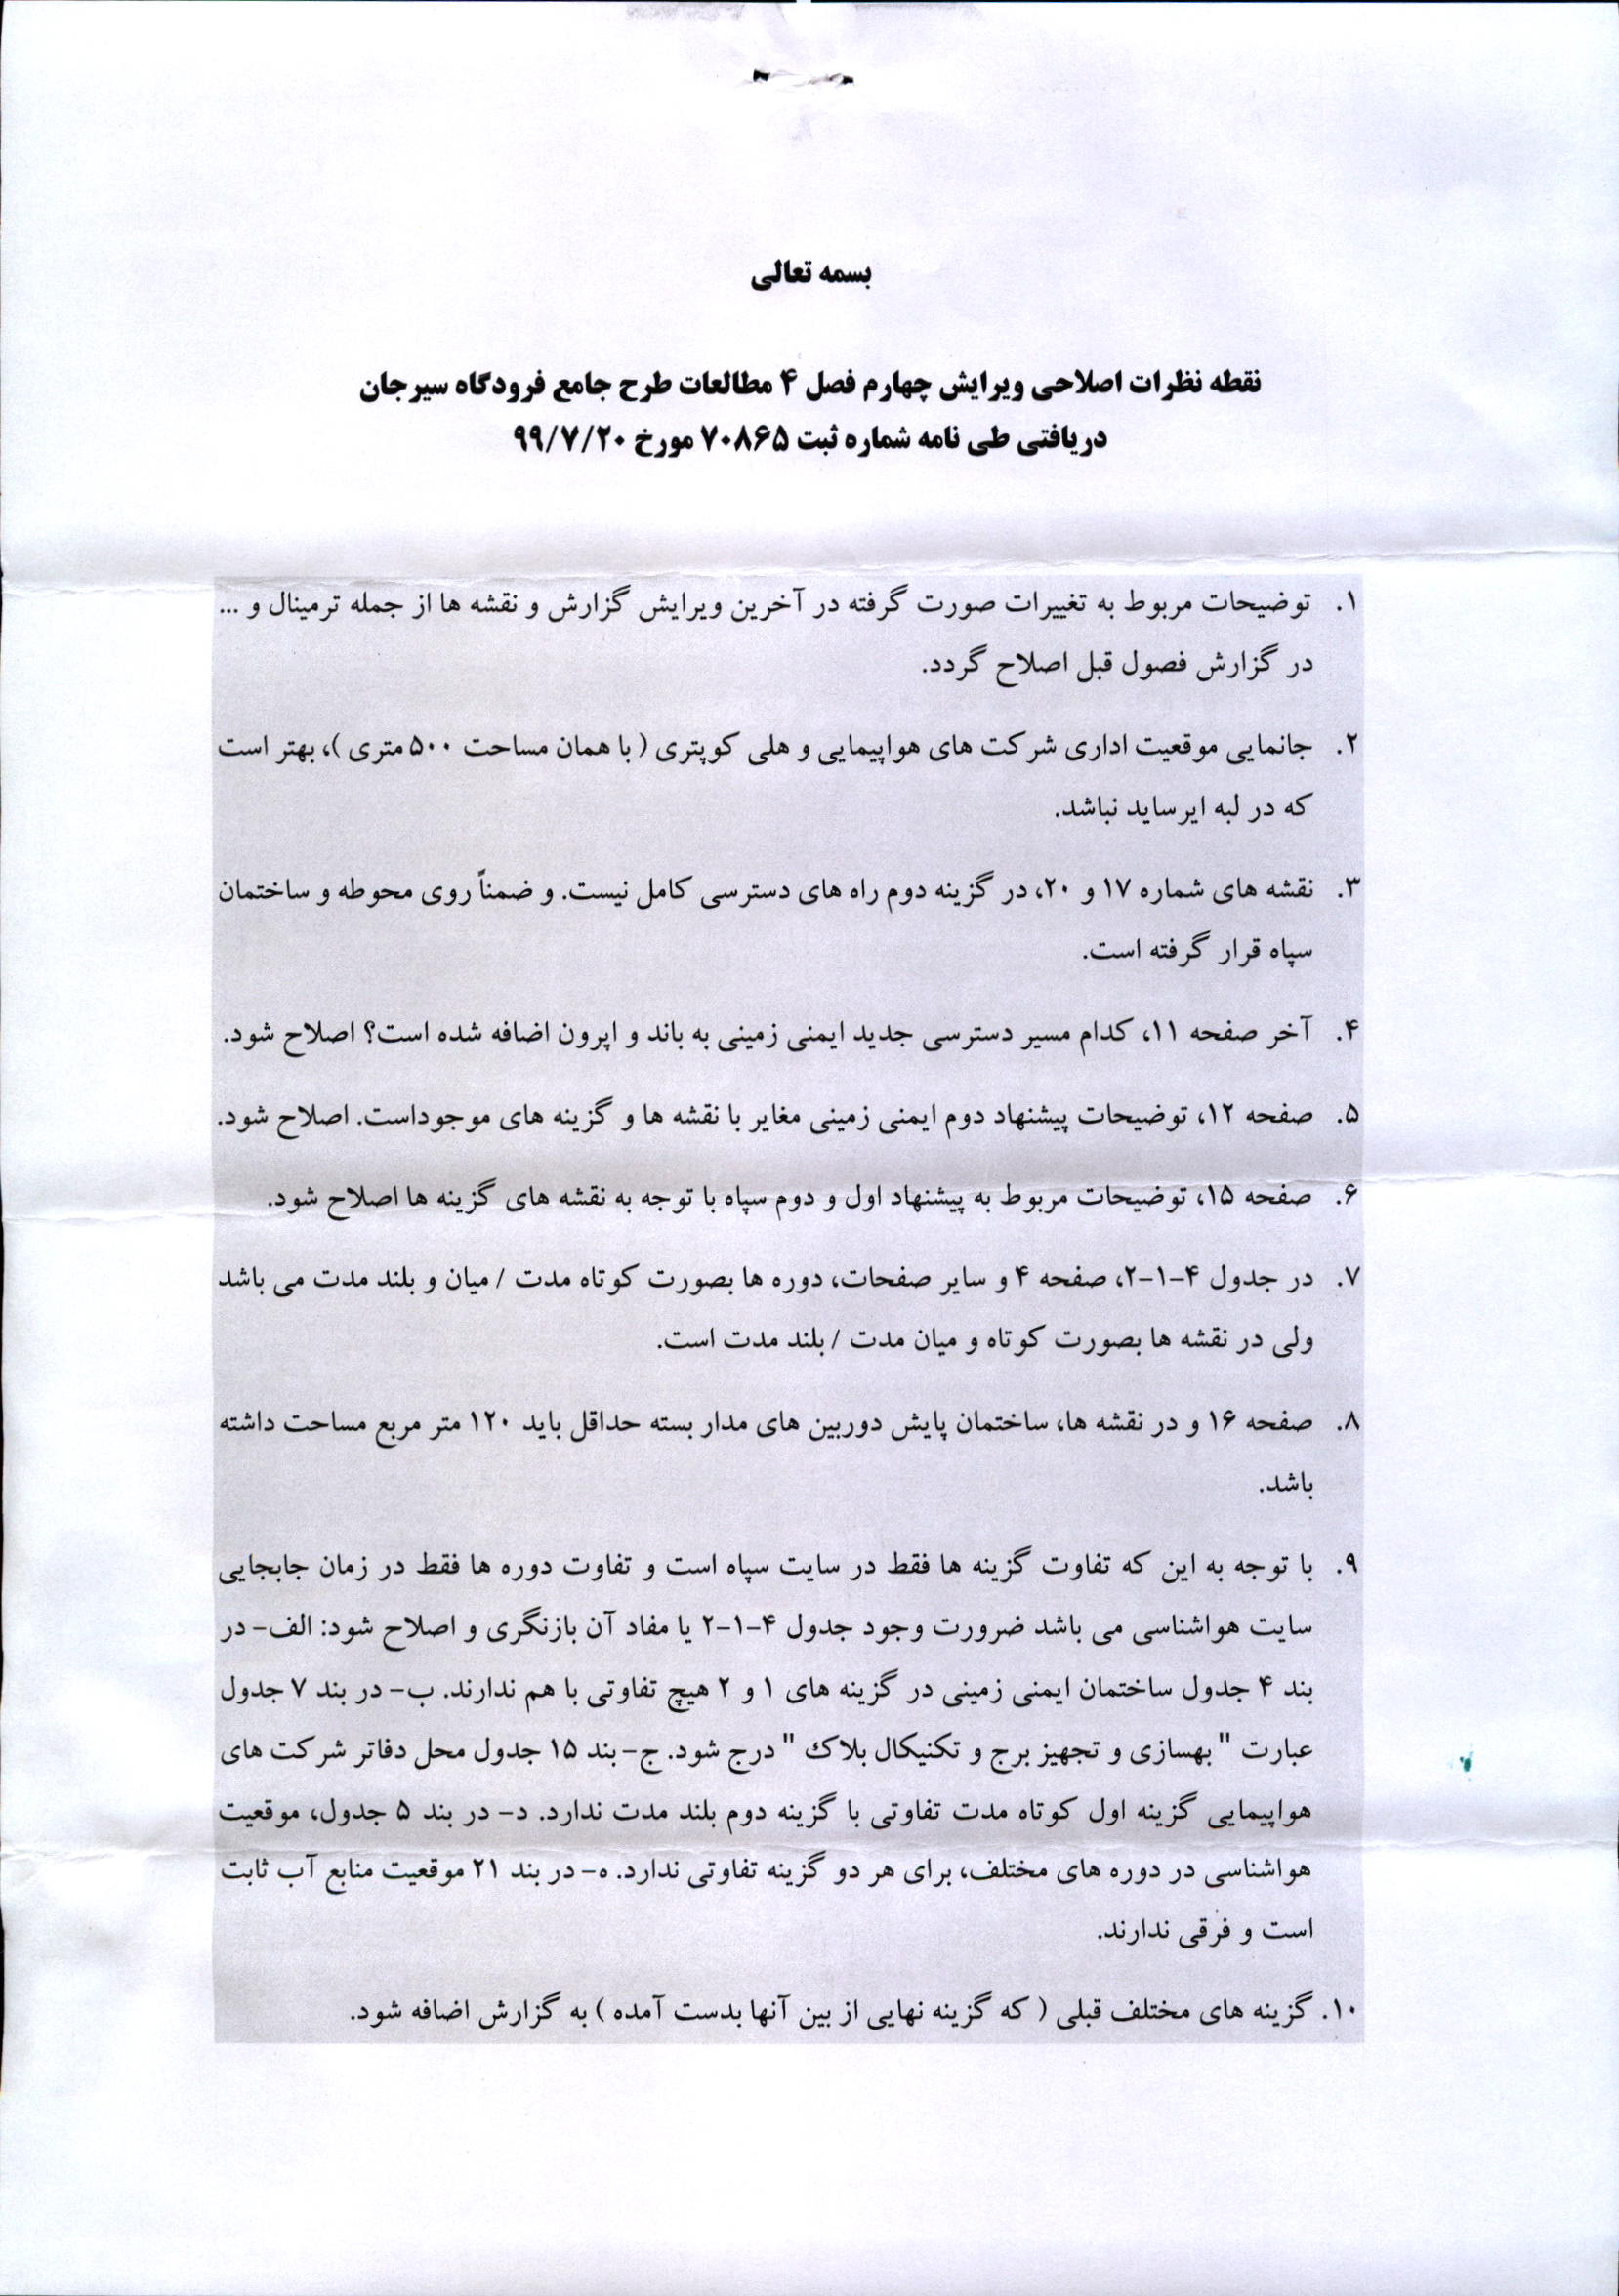 بسمه تعالی
نقطه نظرات اصلاحی ویرایش چهارم فصل ۴ مطالعات طرح جامع فرودگاه سیرجان
دریافتی طی نامه شماره ثبت ۷۰۸۶۵ مورخ ۹۹/۷/۲۰
۱. توضیحات مربوط به تغییرات صورت گرفته در آخرین ویرایش گزارش و نقشه ها از جمله ترمینال و ...
در گزارش فصول قبل اصلاح گردد.
۲. جانمایی موقعیت اداری شرکت های هواپیمایی و هلی کوپتری ( با همان مساحت ۵۰۰ متری )، بهتر است
که در لبه ایرساید نباشد.
۳. نقشه های شماره ۱۷ و ۲۰، در گزینه دوم راه های دسترسی کامل نیست. و ضمناً روی محوطه و ساختمان
سپاه قرار گرفته است.
۴. آخر صفحه ۱۱، کدام مسیر دسترسی جدید ایمنی زمینی به باند و اپرون اضافه شده است؟ اصلاح شود.
۵. صفحه ۱۲، توضیحات پیشنهاد دوم ایمنی زمینی مغایر با نقشه ها و گزینه های موجوداست. اصلاح شود.
۶. صفحه ۱۵، توضیحات مربوط به پیشنهاد اول و دوم سپاه با توجه به نقشه های گزینه ها اصلاح شود.
۷. در جدول ۴-۱-۲، صفحه ۴ و سایر صفحات، دوره ها بصورت کوتاه مدت / میان و بلند مدت می باشد
ولی در نقشه ها بصورت کوتاه و میان مدت / بلند مدت است.
۸. صفحه ۱۶ و در نقشه ها، ساختمان پایش دوربین های مدار بسته حداقل باید ۱۲۰ متر مربع مساحت داشته
باشد.
۹. با توجه به این که تفاوت گزینه ها فقط در سایت سپاه است و تفاوت دوره ها فقط در زمان جابجایی
سایت هواشناسی می باشد ضرورت وجود جدول ۴-۱-۲ یا مفاد آن بازنگری و اصلاح شود: الف- در
بند ۴ جدول ساختمان ایمنی زمینی در گزینه های ۱ و ۲ هیچ تفاوتی با هم ندارند. ب- در بند ۷ جدول
عبارت " بهسازی و تجهیز برج و تکنیکال بلاک " درج شود. ج- بند ۱۵ جدول محل دفاتر شرکت های
هواپیمایی گزینه اول کوتاه مدت تفاوتی با گزینه دوم بلند مدت ندارد. د- در بند ۵ جدول، موقعیت
هواشناسی در دوره های مختلف، برای هر دو گزینه تفاوتی ندارد. ه- در بند ۲۱ موقعیت منابع آب ثابت
است و فرقی ندارند.
۱۰. گزینه های مختلف قبلی ( که گزینه نهایی از بین آنها بدست آمده ) به گزارش اضافه شود.